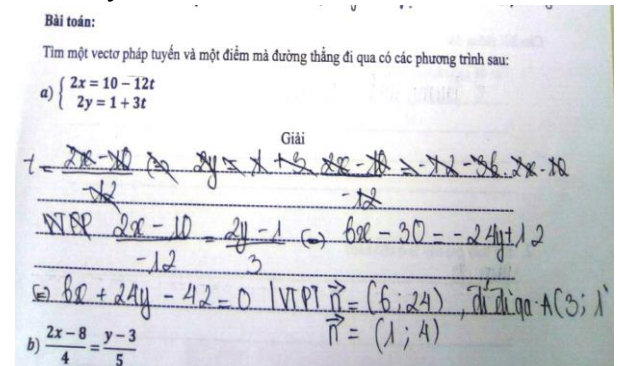 Bài toán:
Tìm một vectơ pháp tuyến và một điểm mà đường thẳng đi qua có các phương trình sau:
a) { 2x = 10 − 12t
2y = 1 + 3t
Giải
t = 2x - 10 / -12 ⇔ 2y = 1 + 3 2x - 10 / -12 = -12 - 36. 2x - 10
VTPP 2x - 10 / -12 = 2y - 1 / 3 ⇔ 6x - 30 = -24y + 12
⇔ 6x + 24y - 42 = 0 VTPT n⃗ = (6 ; 24) , đi qua A(3 ; 1
n⃗ = (1 ; 4)
b) 2x − 8 / 4 = y − 3 / 5